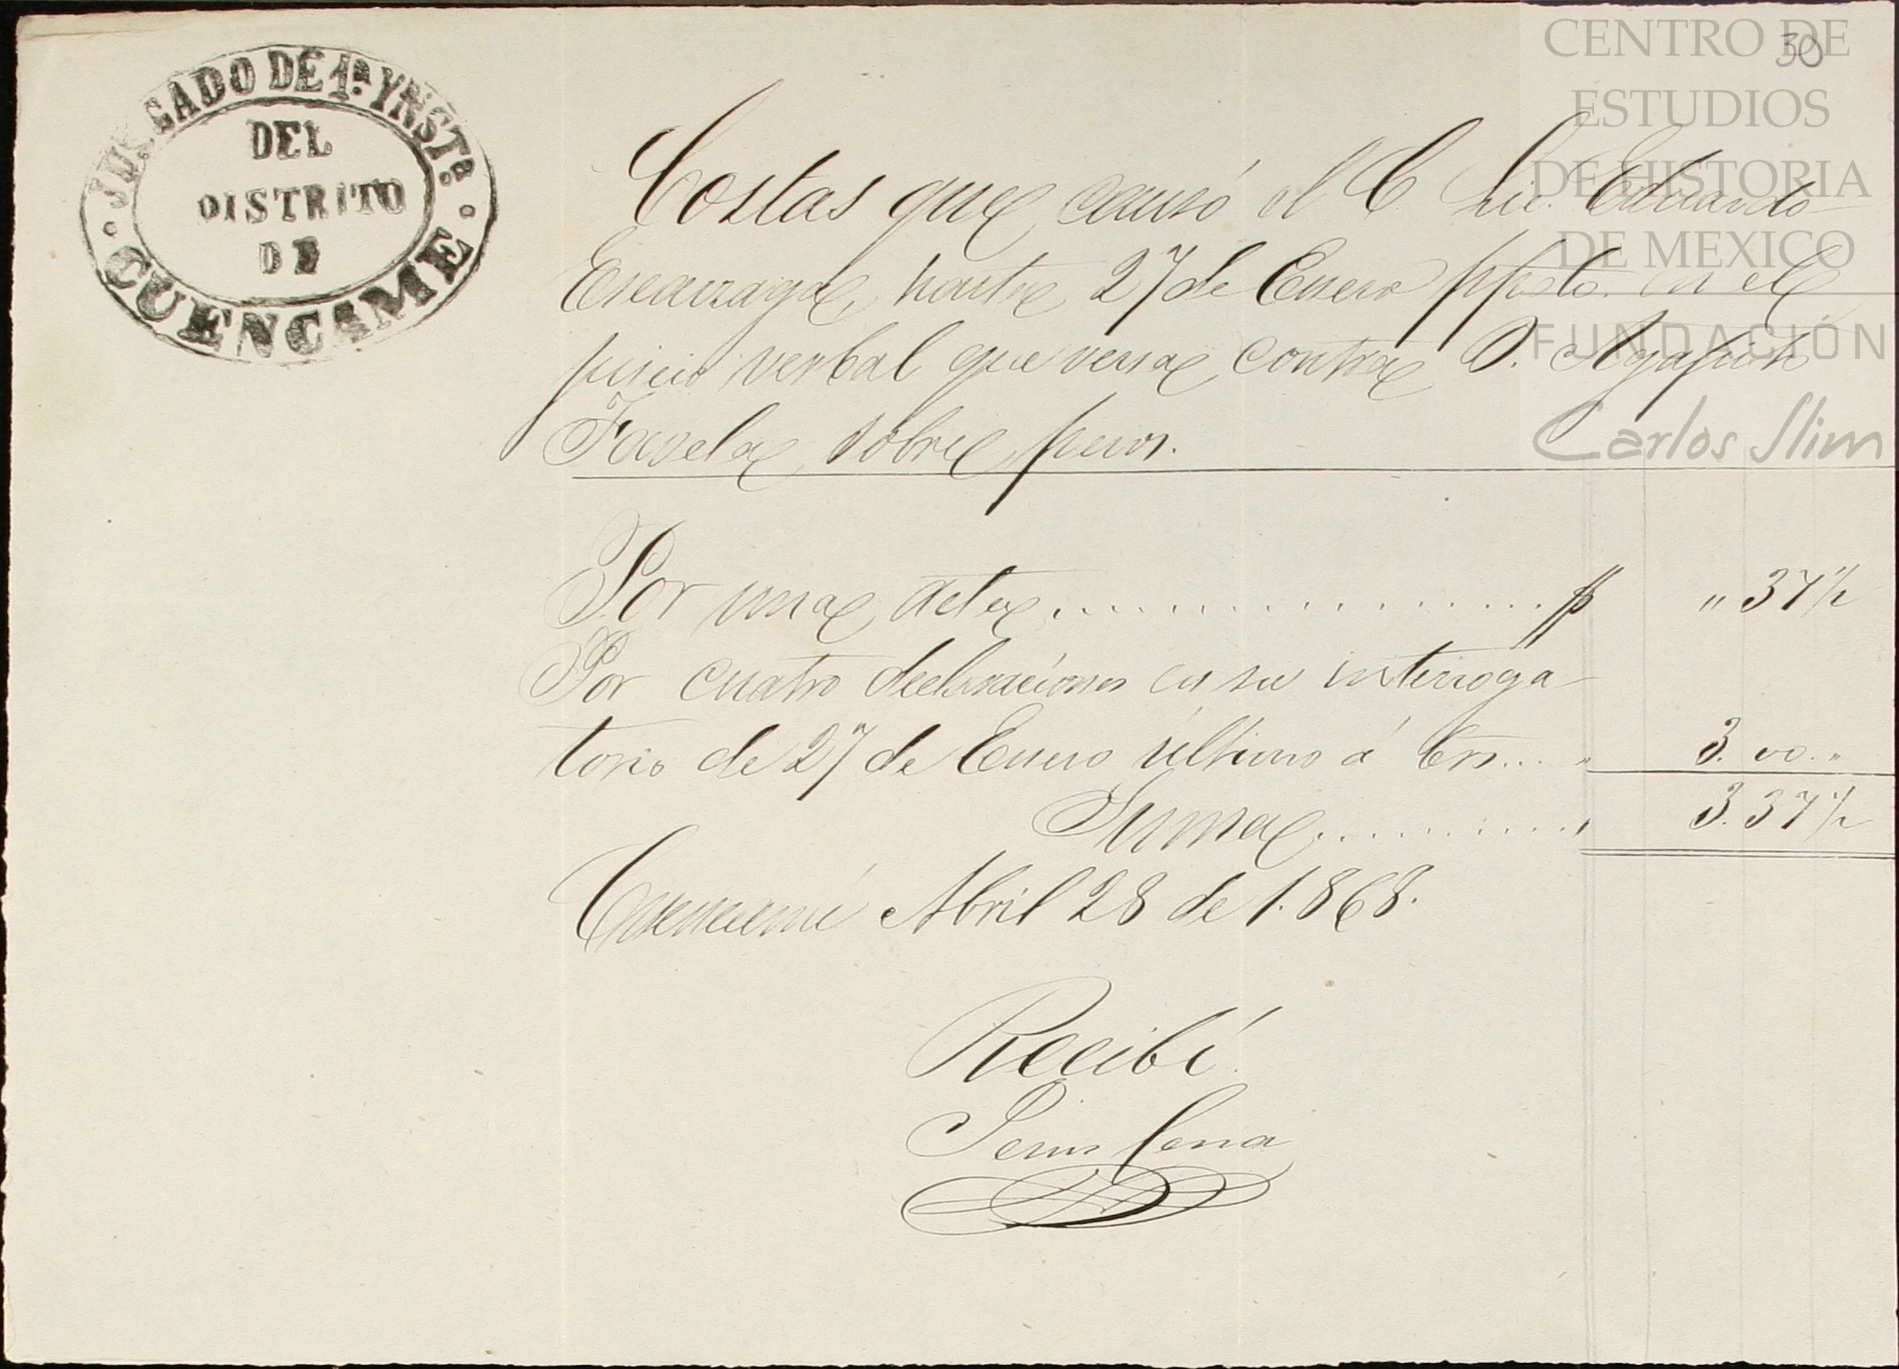 JUZGADO DE 1ª YNSTª
DEL
DISTRITO
DE
CUENCAME
30
CENTRO DE
ESTUDIOS
DE HISTORIA
DE MEXICO
FUNDACIÓN
Carlos Slim
Costas que causó el C. Lic. Eduardo
Escarzaga, hasta 27 de Enero ppdo. en el
juicio verbal que versa contra D. Agapito
Favela, sobre pesos.
Por una acta................$ " 37 1/2
Por cuatro declaraciones en su interroga-
torio de 27 de Enero último á 6rs.... " 3. 00. "
Suma........... " 3. 37 1/2
Cuencamé Abril 28 de 1.868.
Recibí
Jesus Cena